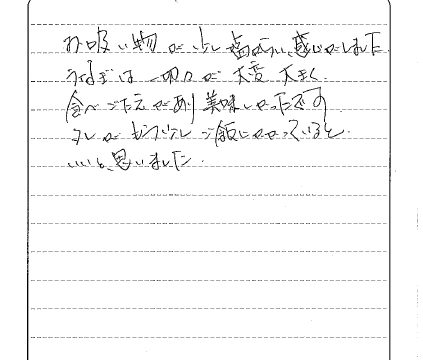 お吸い物が少し塩からい感じがしました
うなぎは一切れが大変大きく
食べごたえがあり美味しかったです
タレがもう少しご飯にかかっていると
いいと思いました.